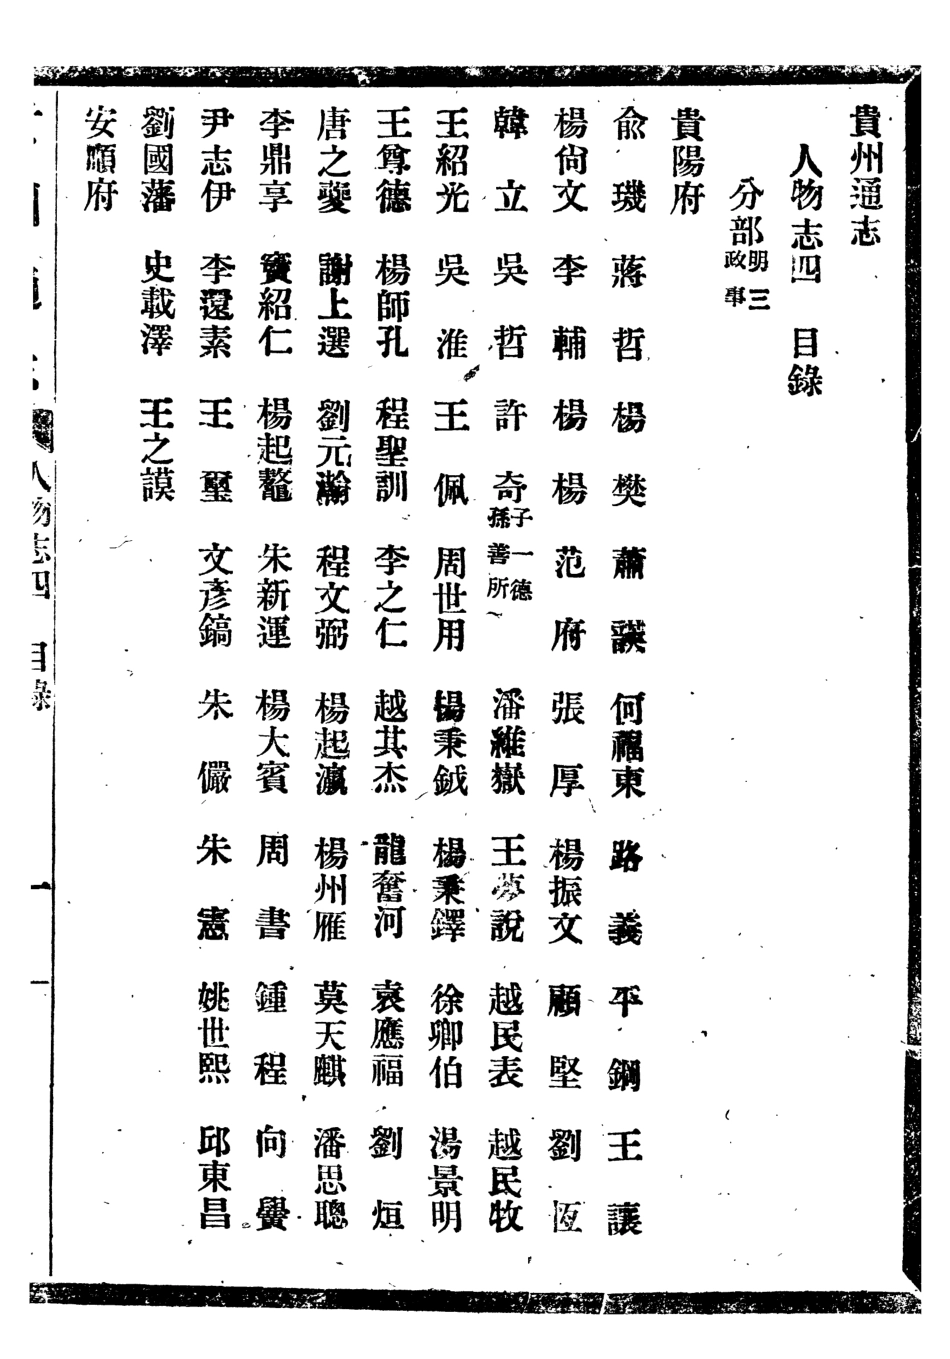 貴州通志
人物志四　目錄
分部明三政事
貴陽府
兪璣　蔣哲　楊樊　蕭諆　何福東　路義　平鋼　王讓
楊尙文　李輔　楊楊　范府　張厚　楊振文　顧堅　劉恆
韓立　吳哲　許奇子一德孫善所　潘維嶽　王夢說　越民表　越民牧
王紹光　吳淮　王佩　周世用　楊秉鉞　楊秉鐸　徐卿伯　湯景明
王尊德　楊師孔　程聖訓　李之仁　越其杰　龍奮河　袁應福　劉烜
唐之夔　謝上選　劉元瀚　程文弼　楊起瀛　楊州雁　莫天麒　潘思聰
李鼎享　竇紹仁　楊起鼇　朱新運　楊大賓　周書　鍾程　向黌
尹志伊　李還素　王璽　文彥鎬　朱儼　朱憲　姚世熙　邱東昌
劉國藩　史載澤　王之謨
安順府
人物志四　目錄　一